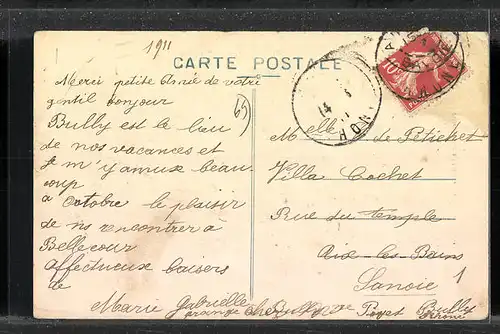 1911
CARTE POSTALE
Merci petite Amie de votre
gentil bonjour
Bully est le lieu
de nos vacances et
je m'y amuse beau
coup
a octobre le plaisir
de ns rencontrer a
Bellecour
affectueux baisers
de
Marie Gabrielle
69
10
Melle de Petichet
Villa Cochet
Rue du temple
Aix-les-Bains
Savoie
1
Bully
Rhone